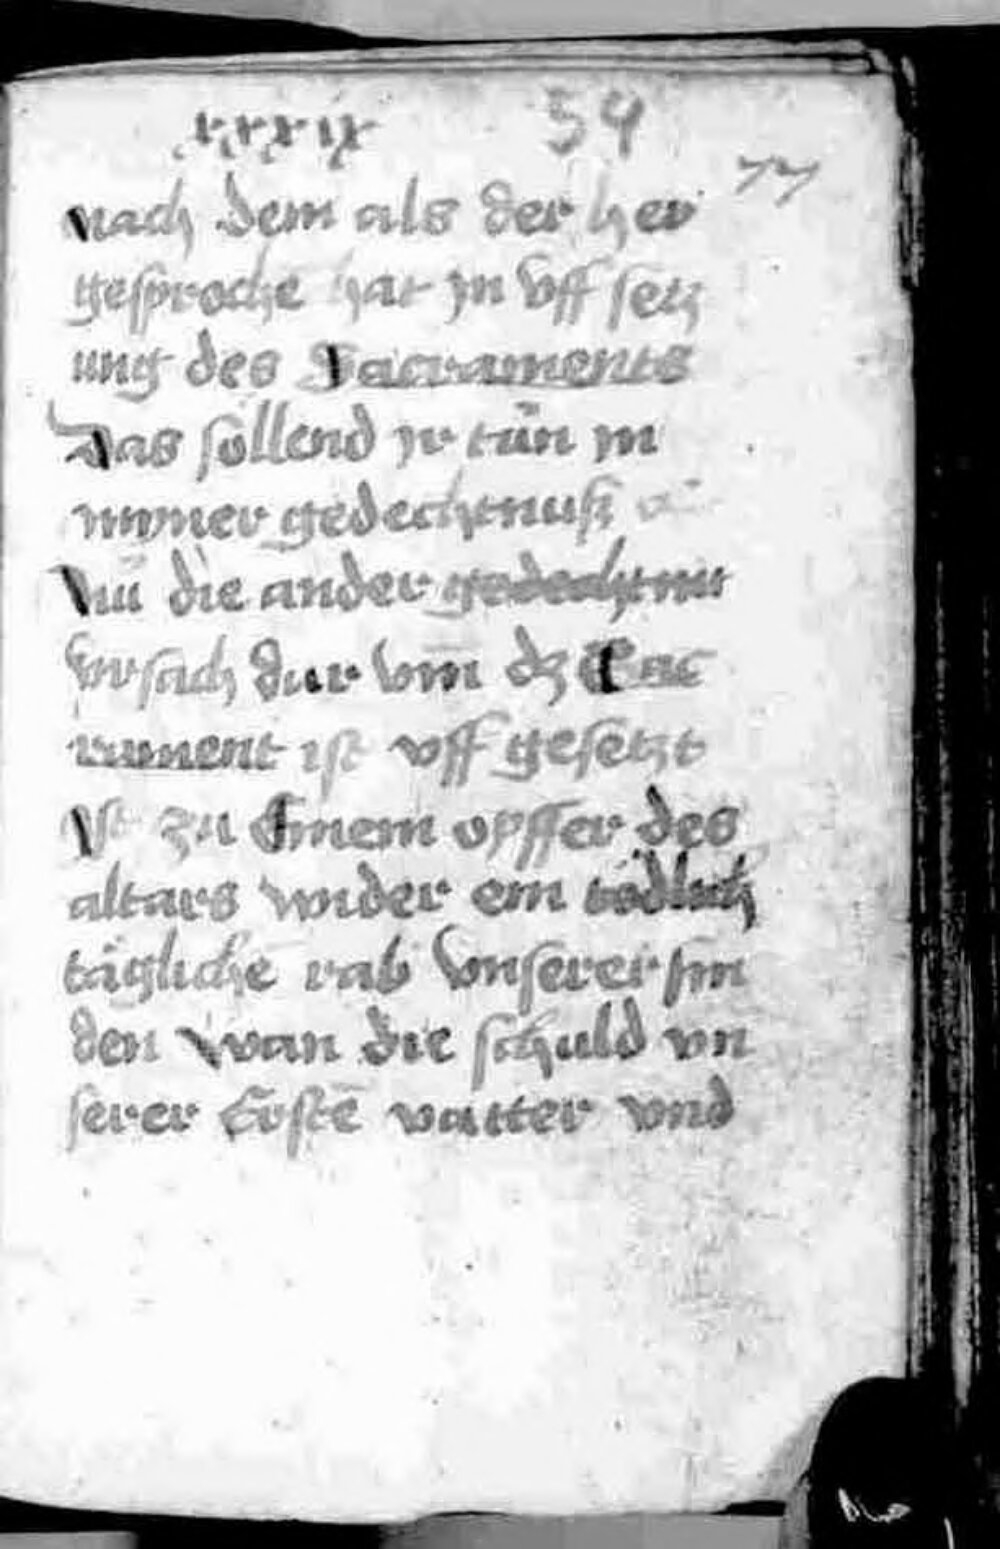 xxxix 54
77
nach dem als der her
gesproche hat jn vff setz
ung des Sacraments
Das söllend jr tün jn
myner gedechtnuß
Nu die ander gedechtnu
vrsach dar vm dz Sac
rament ist vff gesetzt
Ist zu Einem opffer des
altars wider ein tödlich
täglichē rab vnserer sün
den wan die schuld vn
serer Erstē vatter vnd